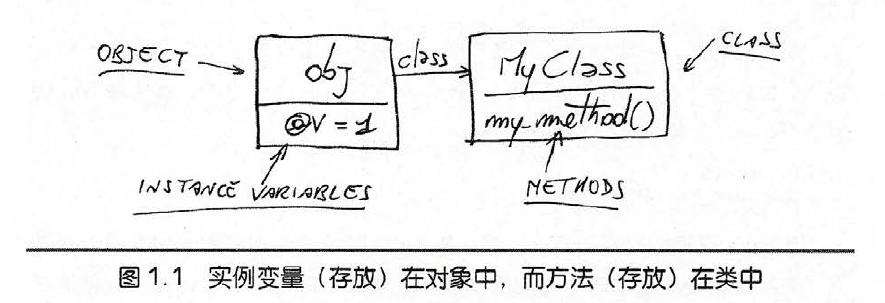 OBJECT
obj
class
MyClass
CLASS
@v = 1
my_method()
INSTANCE VARIABLES
METHODS
图 1.1 实例变量（存放）在对象中，而方法（存放）在类中